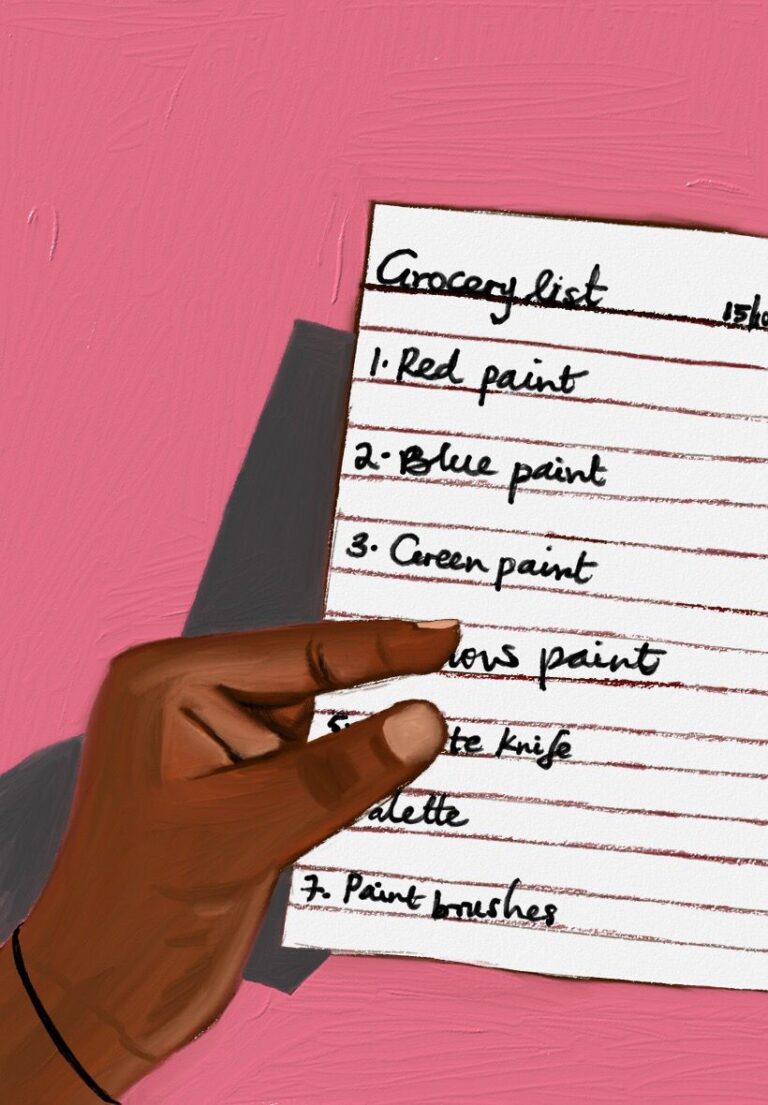 Grocery list 15/10
1. Red paint
2. Blue paint
3. Green paint
paint
5. knife
alette
7. Paint brushes